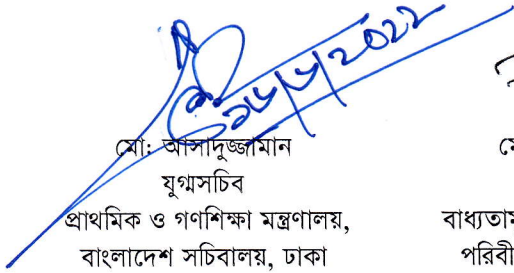 ১৮/৮/২০২২
মো: আসাদুজ্জামান
যুগ্মসচিব
প্রাথমিক ও গণশিক্ষা মন্ত্রণালয়,
বাংলাদেশ সচিবালয়, ঢাকা